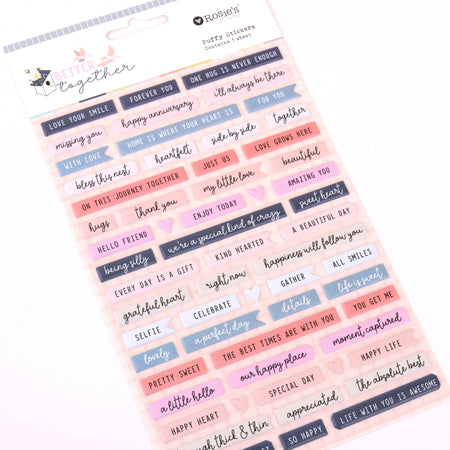 BETTER
together
Rosie's
Puffy Stickers
Contains 1 sheet
LOVE YOUR SMILE FOREVER YOU ONE HUG IS NEVER ENOUGH
missing you happy anniversary i'll always be there
WITH LOVE HOME IS WHERE YOUR HEART IS FOR YOU
bless this nest heartfelt side by side together
ON THIS JOURNEY TOGETHER JUST US LOVE GROWS HERE
hugs thank you my little love beautiful
HELLO FRIEND ENJOY TODAY AMAZING YOU
being silly we're a special kind of crazy sweet heart
EVERY DAY IS A GIFT KIND HEARTED A BEAUTIFUL DAY
grateful heart right now happiness will follow you
SELFIE CELEBRATE GATHER ALL SMILES
lovely a perfect day details life is sweet
PRETTY SWEET THE BEST TIMES ARE WITH YOU YOU GET ME
a little hello our happy place moment captured
HAPPY HEART SPECIAL DAY HAPPY LIFE
thick & thin appreciated the absolute best
SO HAPPY LIFE WITH YOU IS AWESOME